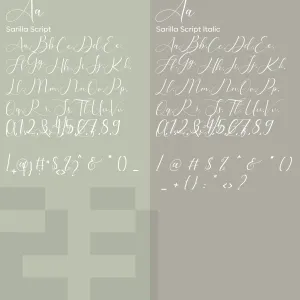 Aa
Sarilla Script
Aa Bb Cc Dd Ee
Ff Gg Hh Ii Jj
Kk Ll Mm Nn Oo Pp
Qq Rr Ss Tt Uu Vv
0,1,2,3,4,5,6,7,8,9
Aa
Sarilla Script Italic
Aa Bb Cc Dd Ee
Ff Gg Hh Ii Jj Kk
Ll Mm Nn Oo Pp
Qq Rr Ss Tt Uu Vv
0,1,2,3,4,5,6,7,8,9
! @ # $ % ^ & * ( ) _
_ + ( ) : " <> ?